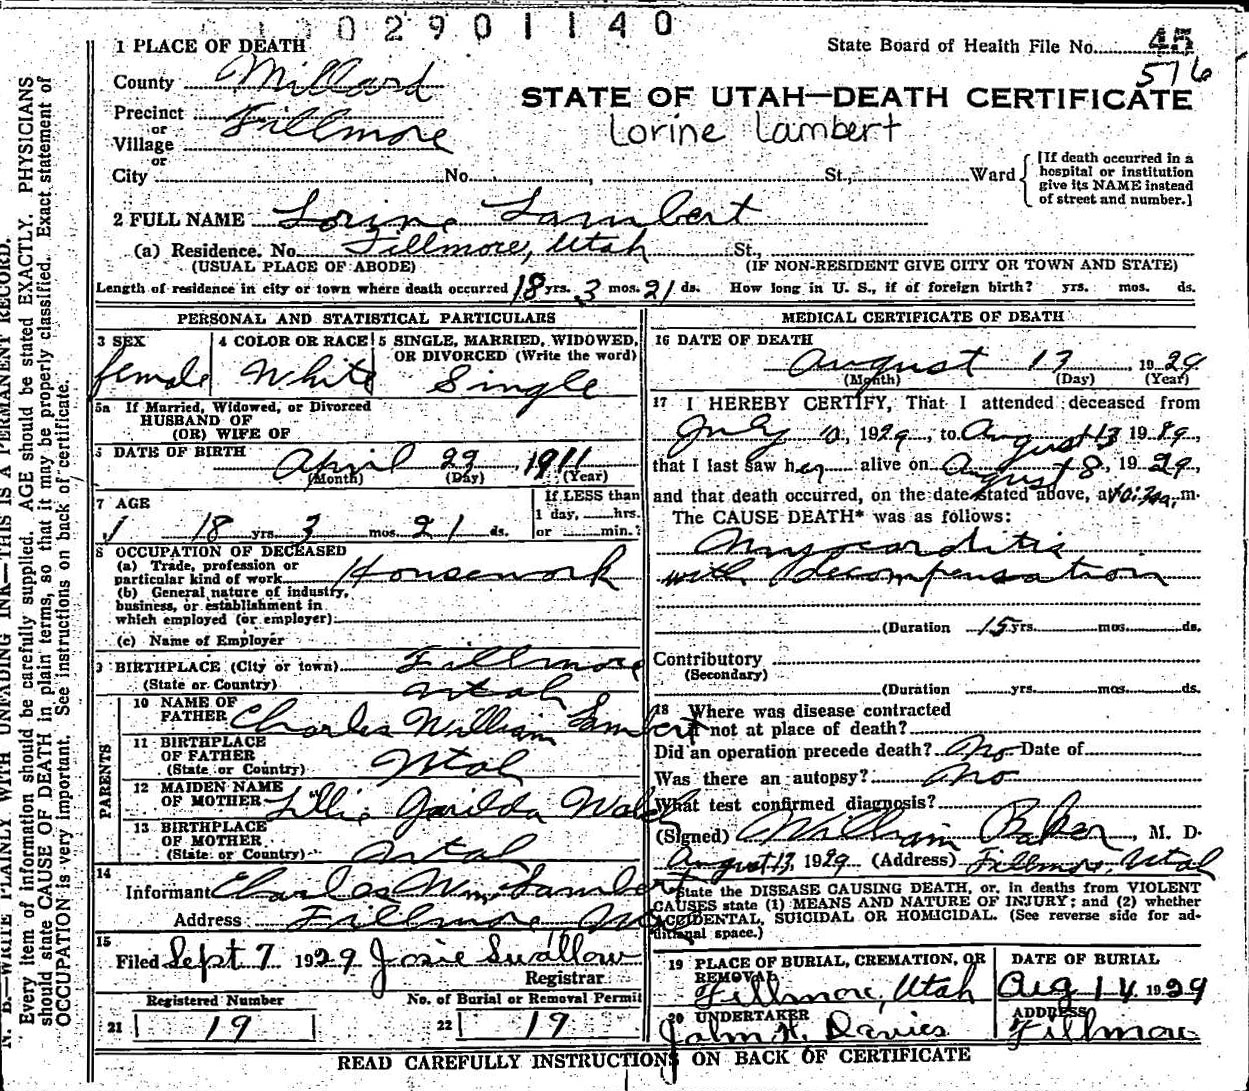 02901140
1 PLACE OF DEATH
State Board of Health File No. 45
576
County Millard
STATE OF UTAH—DEATH CERTIFICATE
Precinct
or
Village Fillmore
Lorine Lambert
or
City No. , St., Ward
[If death occurred in a
hospital or institution
give its NAME instead
of street and number.]
2 FULL NAME Lorine Lambert
(a) Residence. No. Fillmore, Utah St.,
(USUAL PLACE OF ABODE) (IF NON-RESIDENT GIVE CITY OR TOWN AND STATE)
Length of residence in city or town where death occurred 18 yrs. 3 mos. 21 ds. How long in U. S., if of foreign birth? yrs. mos. ds.
PERSONAL AND STATISTICAL PARTICULARS
3 SEX
female
4 COLOR OR RACE
White
5 SINGLE, MARRIED, WIDOWED,
OR DIVORCED (Write the word)
Single
5a If Married, Widowed, or Divorced
HUSBAND OF
(OR) WIFE OF
6 DATE OF BIRTH April 22 1911
(Month) (Day) (Year)
7 AGE
18 yrs. 3 mos. 21 ds.
If LESS than
1 day, hrs.
or min.?
8 OCCUPATION OF DECEASED
(a) Trade, profession or
particular kind of work Housework
(b) General nature of industry,
business, or establishment in
which employed (or employer)
(c) Name of Employer
9 BIRTHPLACE (City or town) Fillmore
(State or Country) Utah
PARENTS
10 NAME OF
FATHER Charles William Lambert
11 BIRTHPLACE
OF FATHER
(State or Country) Utah
12 MAIDEN NAME
OF MOTHER Lillie
13 BIRTHPLACE
OF MOTHER
(State or Country) Utah
14
Informant Charles Wm. Lambert
Address Fillmore
15
Filed Sept 7 1929 Josie Swallow
Registrar
Registered Number
21 19
No. of Burial or Removal Permit
22 19
MEDICAL CERTIFICATE OF DEATH
16 DATE OF DEATH
August 13 1929
(Month) (Day) (Year)
17 I HEREBY CERTIFY, That I attended deceased from
July 10, 1929, to August 13 1929,
that I last saw her alive on August 8, 1929,
and that death occurred, on the date stated above, at m.
The CAUSE DEATH* was as follows:
Myocarditis
with decompensation
(Duration 15 yrs. mos. ds.
Contributory
(Secondary)
(Duration yrs. mos. ds.
18 Where was disease contracted
if not at place of death?
Did an operation precede death? No Date of
Was there an autopsy? No
What test confirmed diagnosis?
(Signed) William Baker, M. D.
August 13, 1929 (Address) Fillmore, Utah
*State the DISEASE CAUSING DEATH, or, in deaths from VIOLENT
CAUSES state (1) MEANS AND NATURE OF INJURY; and (2) whether
ACCIDENTAL, SUICIDAL OR HOMICIDAL. (See reverse side for ad-
ditional space.)
19 PLACE OF BURIAL, CREMATION, OR
REMOVAL
Fillmore, Utah
DATE OF BURIAL
Aug 14 1929
20 UNDERTAKER
John H. Davies
ADDRESS
Fillmore
READ CAREFULLY INSTRUCTIONS ON BACK OF CERTIFICATE
N. B.—WRITE PLAINLY WITH UNFADING INK—THIS IS A PERMANENT RECORD.
Every item of information should be carefully supplied. AGE should be stated EXACTLY. PHYSICIANS
should state CAUSE OF DEATH in plain terms, so that it may be properly classified. Exact statement of
OCCUPATION is very important. See instructions on back of certificate.